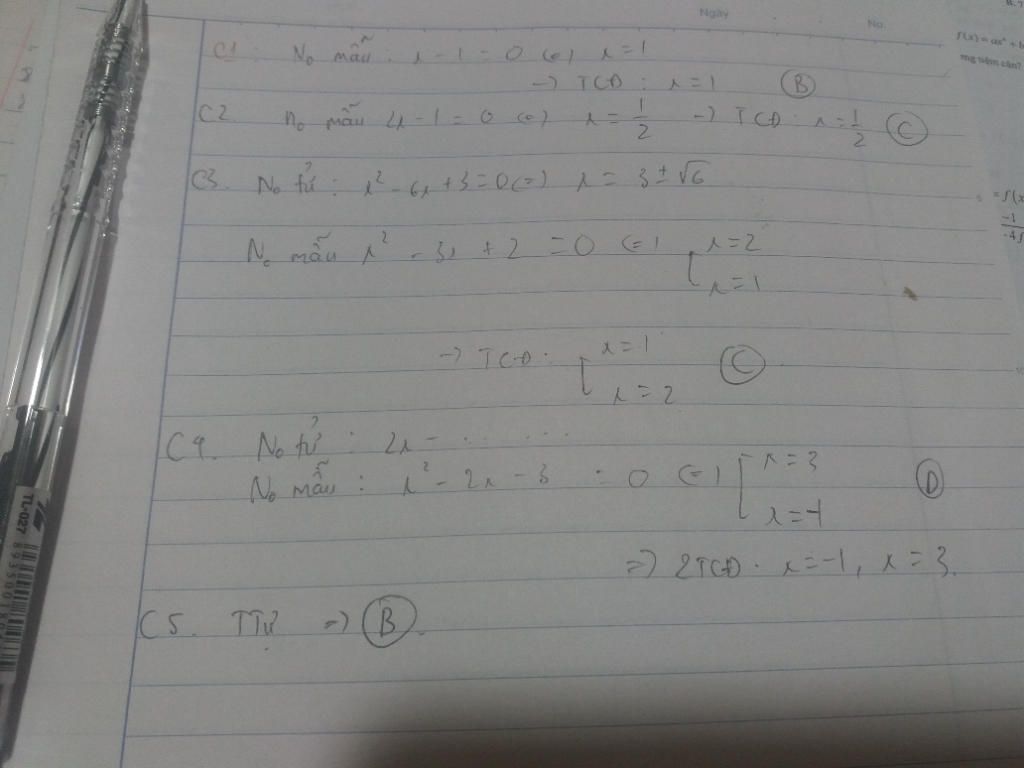 Ngày
No.
C1: No mẫu: x - 1 = 0 (=) x = 1
-> TCĐ: x = 1 (B)
C2. No mẫu 2x - 1 = 0 (=) x = 1/2 -> TCĐ: x = 1/2 (C)
C3. No tử: x² - 6x + 3 = 0 (=) x = 3 ± √6
No mẫu x² - 3x + 2 = 0 (=) [ x = 2
x = 1
-> TCĐ: [ x = 1
x = 2 (C)
C4. No tử: 2x - ... ...
No mẫu: x² - 2x - 3 = 0 (=) [ x = 3
x = -1 (D)
=> 2TCĐ. x = -1, x = 3.
C5. TTự => (B).
TL-027